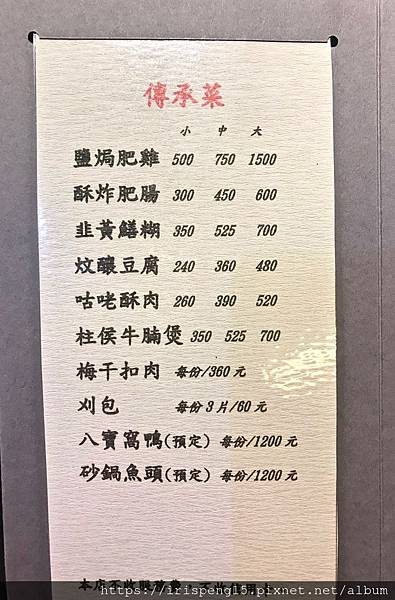 傳承菜
小 中 大
鹽焗肥雞 500 750 1500
酥炸肥腸 300 450 600
韭黃鱔糊 350 525 700
炆釀豆腐 240 360 480
咕咾酥肉 260 390 520
柱侯牛腩煲 350 525 700
梅干扣肉 每份/360元
刈包 每份3片/60元
八寶窩鴨(預定) 每份/1200元
砂鍋魚頭(預定) 每份/1200元
本店不收服務費，不收信用卡
https://irispeng15.pixnet.net/album